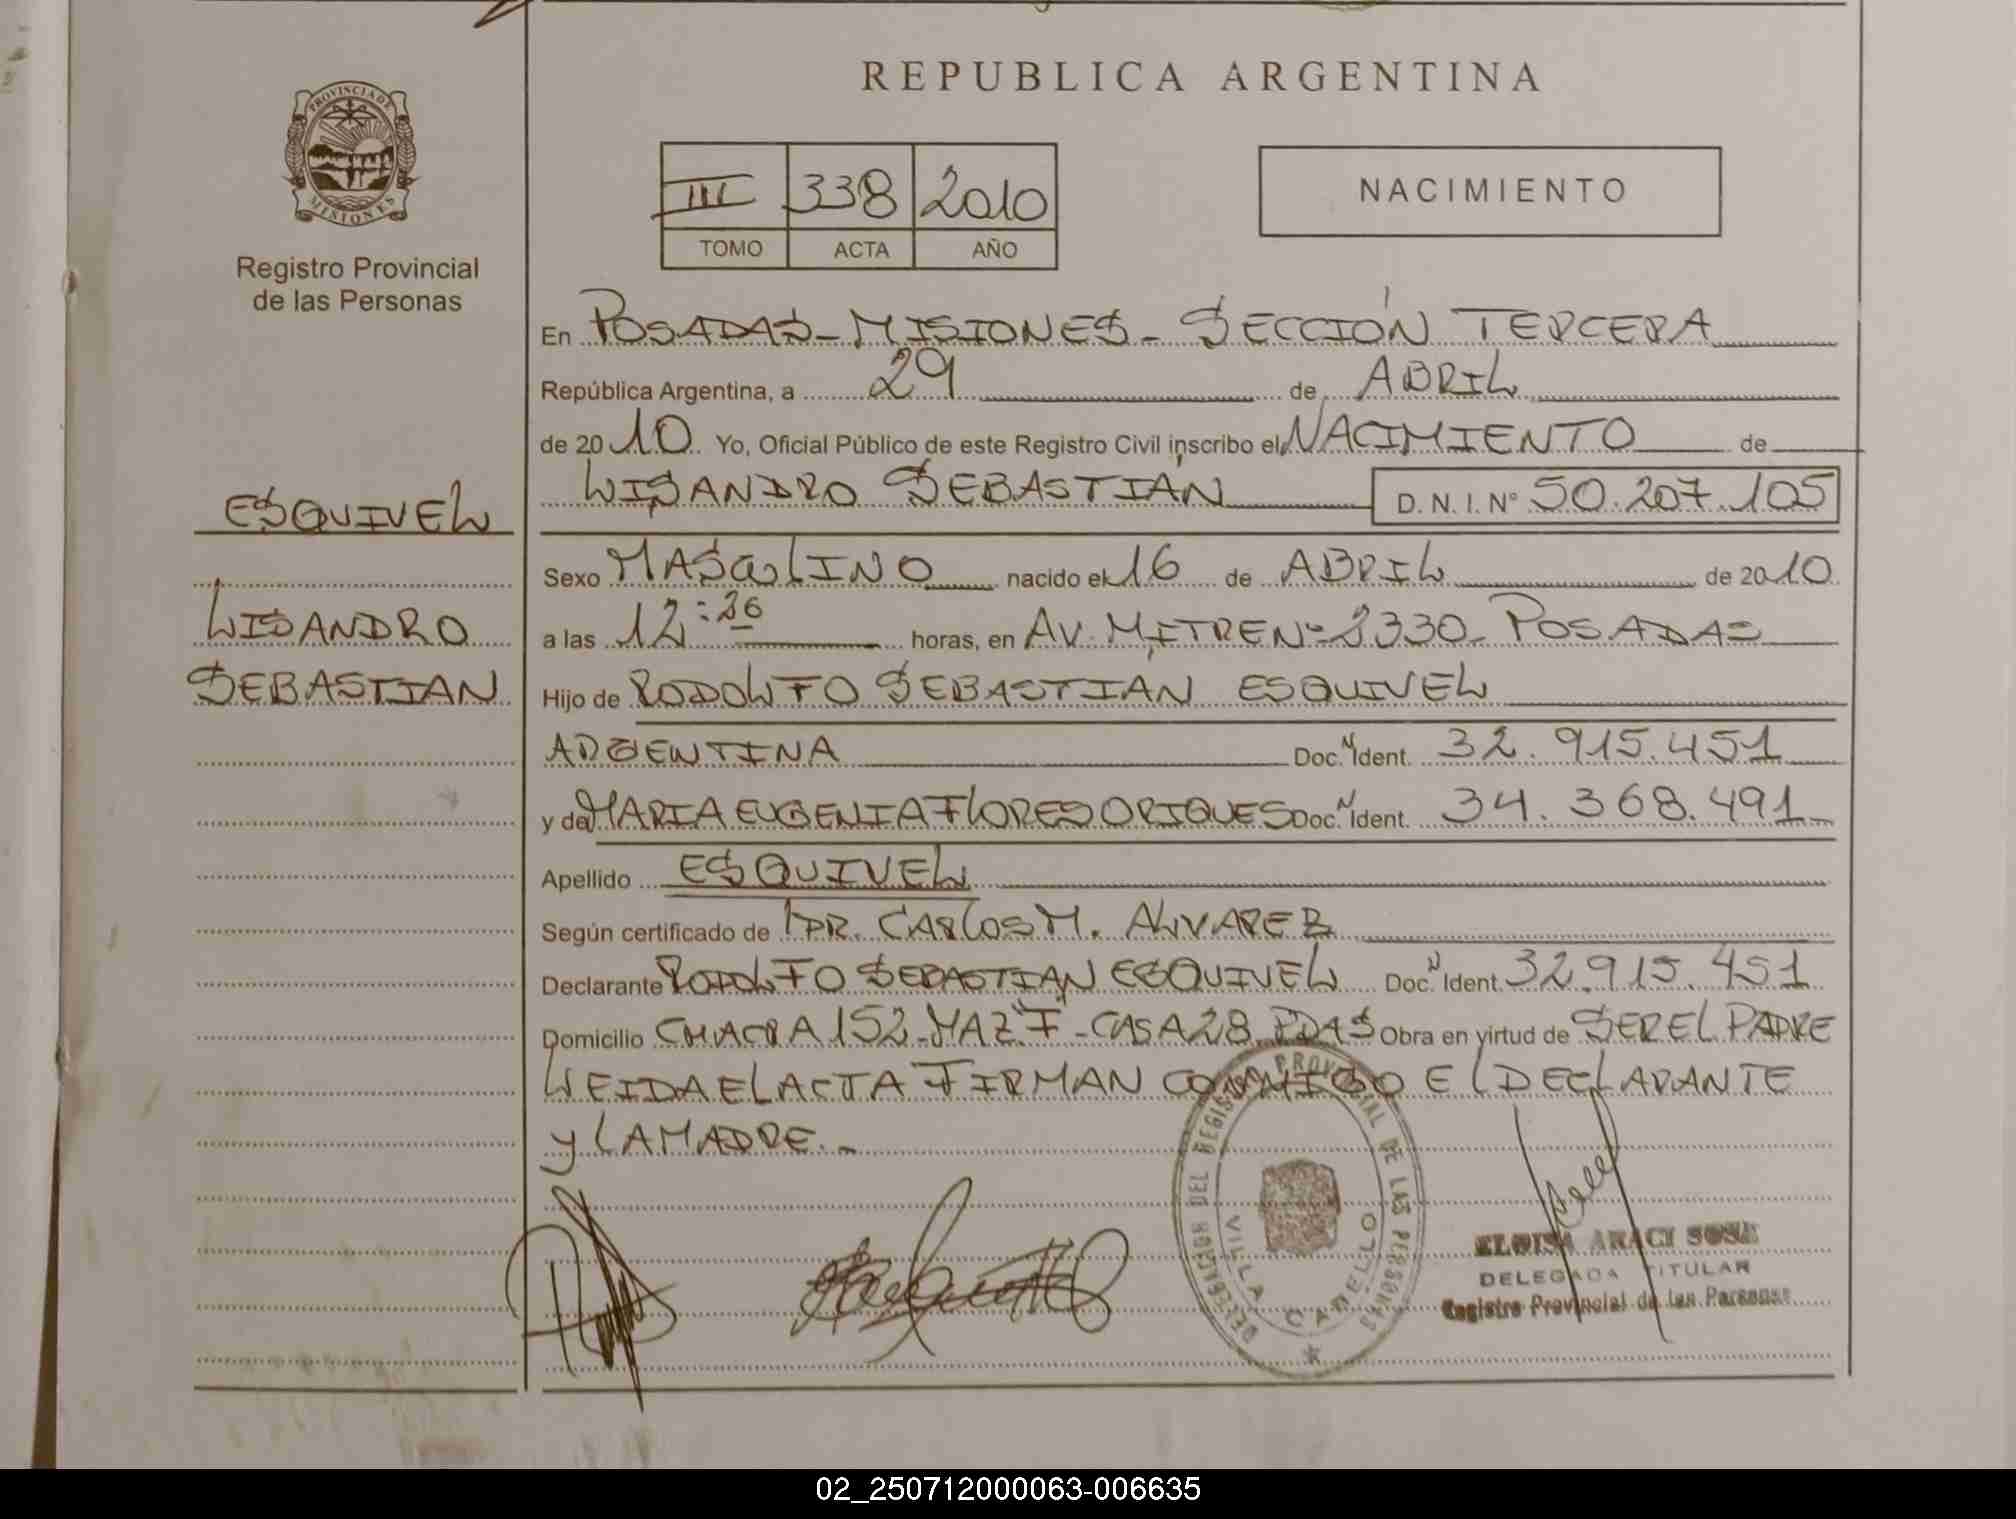 REPUBLICA ARGENTINA
PROVINCIA DE
MISIONES
Registro Provincial
de las Personas
III 338 2010
TOMO ACTA AÑO
NACIMIENTO
En POSADAS - MISIONES - SECCIÓN TERCERA
República Argentina, a 29 de ABRIL
de 2010 Yo, Oficial Público de este Registro Civil inscribo el NACIMIENTO de
LISANDRO SEBASTIÁN D. N. I. Nº 50.207.105
ESQUIVEL
LISANDRO
SEBASTIAN
Sexo MASCULINO nacido el 16 de ABRIL de 2010
a las 12:26 horas, en AV. MITRE Nº 2330 - POSADAS
Hijo de RODOLFO SEBASTIÁN ESQUIVEL
ARGENTINA Doc. N Ident. 32.915.451
y de MARIA EUGENIA FLORES ORIGUES Doc. N Ident. 34.368.491
Apellido ESQUIVEL
Según certificado de DR. CARLOS M. ALVAREZ
Declarante RODOLFO SEBASTIAN ESQUIVEL Doc. N Ident. 32.915.451
Domicilio CHACRA 152 - MAZ "F" - CASA 28 PDAS Obra en virtud de SER EL PADRE
LEIDA EL ACTA FIRMAN CONMIGO EL DECLARANTE
Y LA MADRE. -
DELEGACION DEL REGISTRO PROVINCIAL DE LAS PERSONAS
VILLA CABELLO
ELOISA ARACI SOSA
DELEGADA TITULAR
Registro Provincial de las Personas
02_250712000063-006635